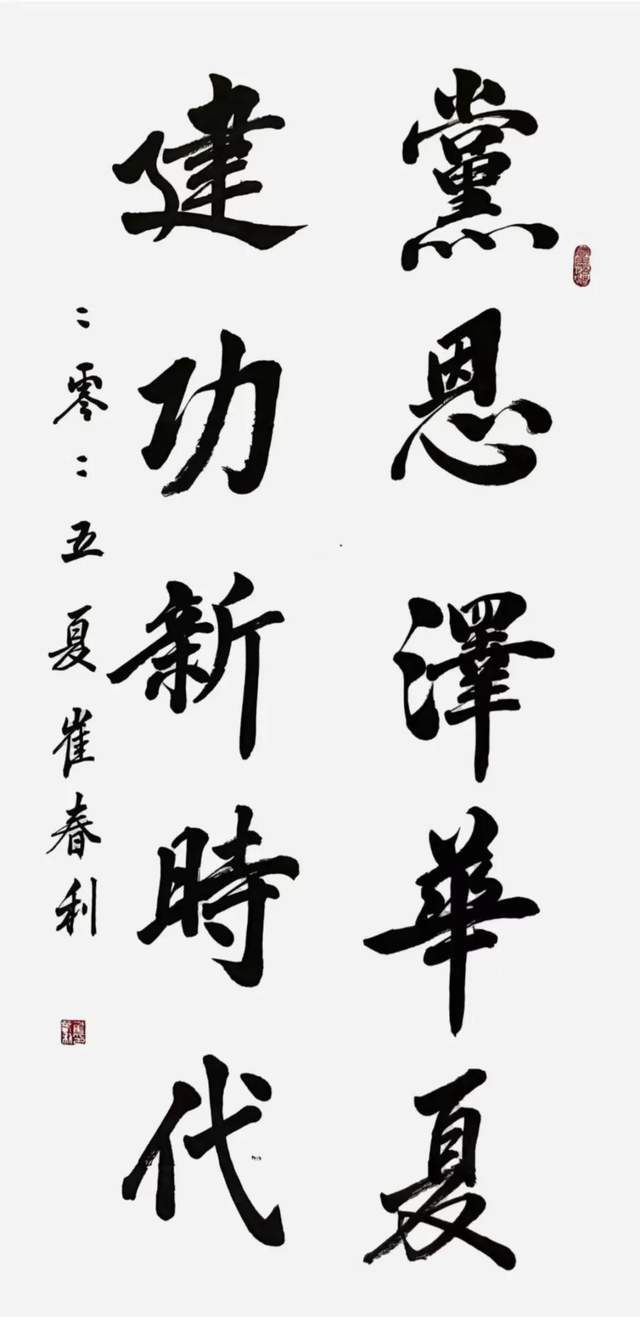 黨恩澤華夏
建功新時代
二零二五夏崔春利